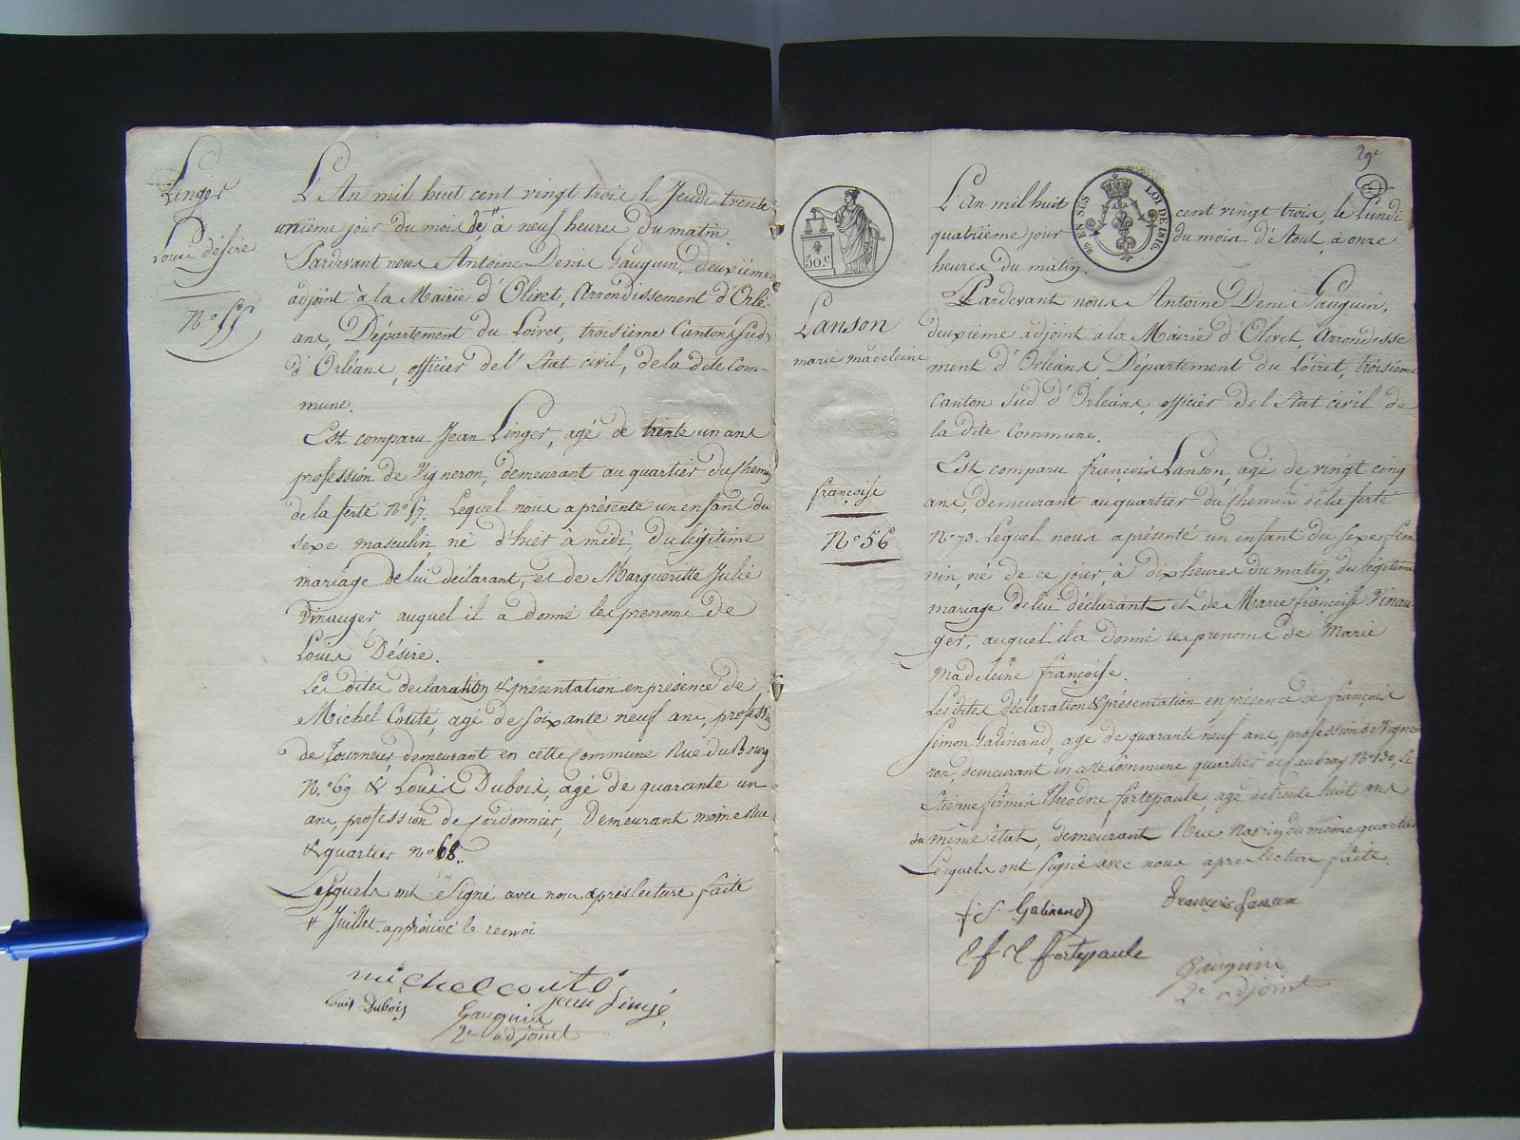 Linger
Louis désiré
N° 55
L'An mil huit cent vingt trois le Jeudi trente
unième jour du mois de # à neuf heures du matin.
Pardevant nous Antoine Denis Gauguin, deuxième
adjoint à la Mairie d'Olivet, Arrondissement d'Orlé-
ans, Département du Loiret, troisième Canton Sud
d'Orléans, officier de l'Etat civil, de la dite Com-
mune.
Est comparu Jean Linger, agé de trente un ans
profession de Vigneron, demeurant au quartier du Chemin
de la ferté N° 57. Lequel nous a présenté un enfant du
sexe masculin né d'hier à midi, du légitime
mariage de lui déclarant, et de Margueritte Julie
Vinauger auquel il a donné les prenoms de
Louis Désiré.
Les dites declaration & présentation en présence de
Michel Couté, agé de soixante neuf ans, profession
de Tourneur demeurant en cette Commune Rue du Bourg
N.° 69 & Louis Dubois, agé de quarante un
ans, profession de Cordonnier, Demeurant même Rue
& quartier n° 68.
Lesquels ont signé avec nous après lecture faite
# Juillet approuvé le renvoi
michel couté
jean Linjé
Louis Dubois
Gauguin
2e adjoint
29e
50 c
LOI DE 1816
Lanson
marie madeleine
françoise
N° 56
L'An mil huit cent vingt trois, le Lundi
quatrième jour du mois d'Aout, à onze
heures du matin.
Pardevant nous Antoine Denis Gauguin,
deuxième adjoint à la Mairie d'Olivet, Arrondisse
ment d'Orléans, Département du Loiret, troisième
Canton Sud d'Orléans, officier de l'Etat civil de
la dite Commune.
Est comparu françois Lanson, agé de vingt cinq
ans, demeurant au quartier du Chemin de la ferté
N° 73. Lequel nous a présenté un enfant du sexe fémi
nin, né de ce jour, à dix heures du matin, du légitime
mariage de lui déclarant et de Marie françoise Vinau
ger, auquel il a donné les prenoms de Marie
Madeleine françoise.
Les dites Déclaration & présentation en présence de françois
Simon Galinand, agé de quarante neuf ans profession de Vigne
ron, demeurant en cette Commune quartier de
Etienne firmin Théodore fortepaule, agé de trente huit ans
du même état, demeurant Rue du même quartier
Lesquels ont signé avec nous après lecture faite.
f. S. Galinand
françois Lanson
E f T fortepaule
Gauguin
2e adjoint